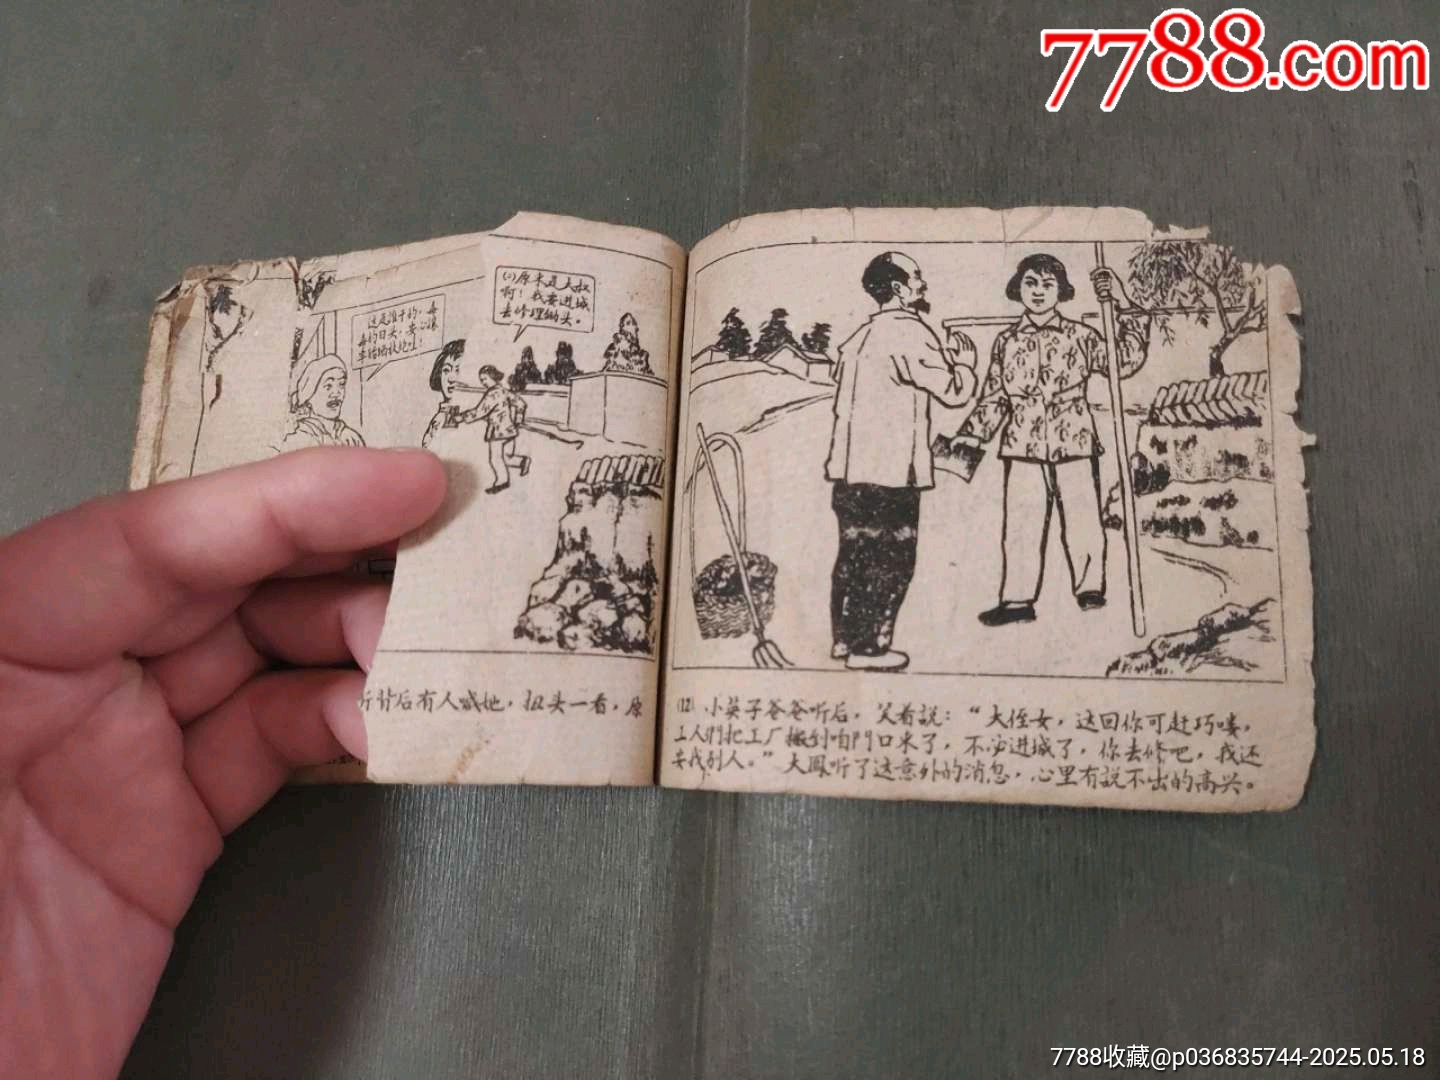 7788.com
(2)原来是大叔
啊！我要进城
去修理锄头。
听背后有人喊她，扭头一看，原
(12) 小英子爸爸听后，笑着説：“大侄女，这回你可赶巧喽，
工人們把工厂搬到咱門口来了，不必进城了，你去修吧，我还
要找别人。”大鳳听了这意外的消息，心里有説不出的高兴。
7788收藏@p036835744-2025.05.18